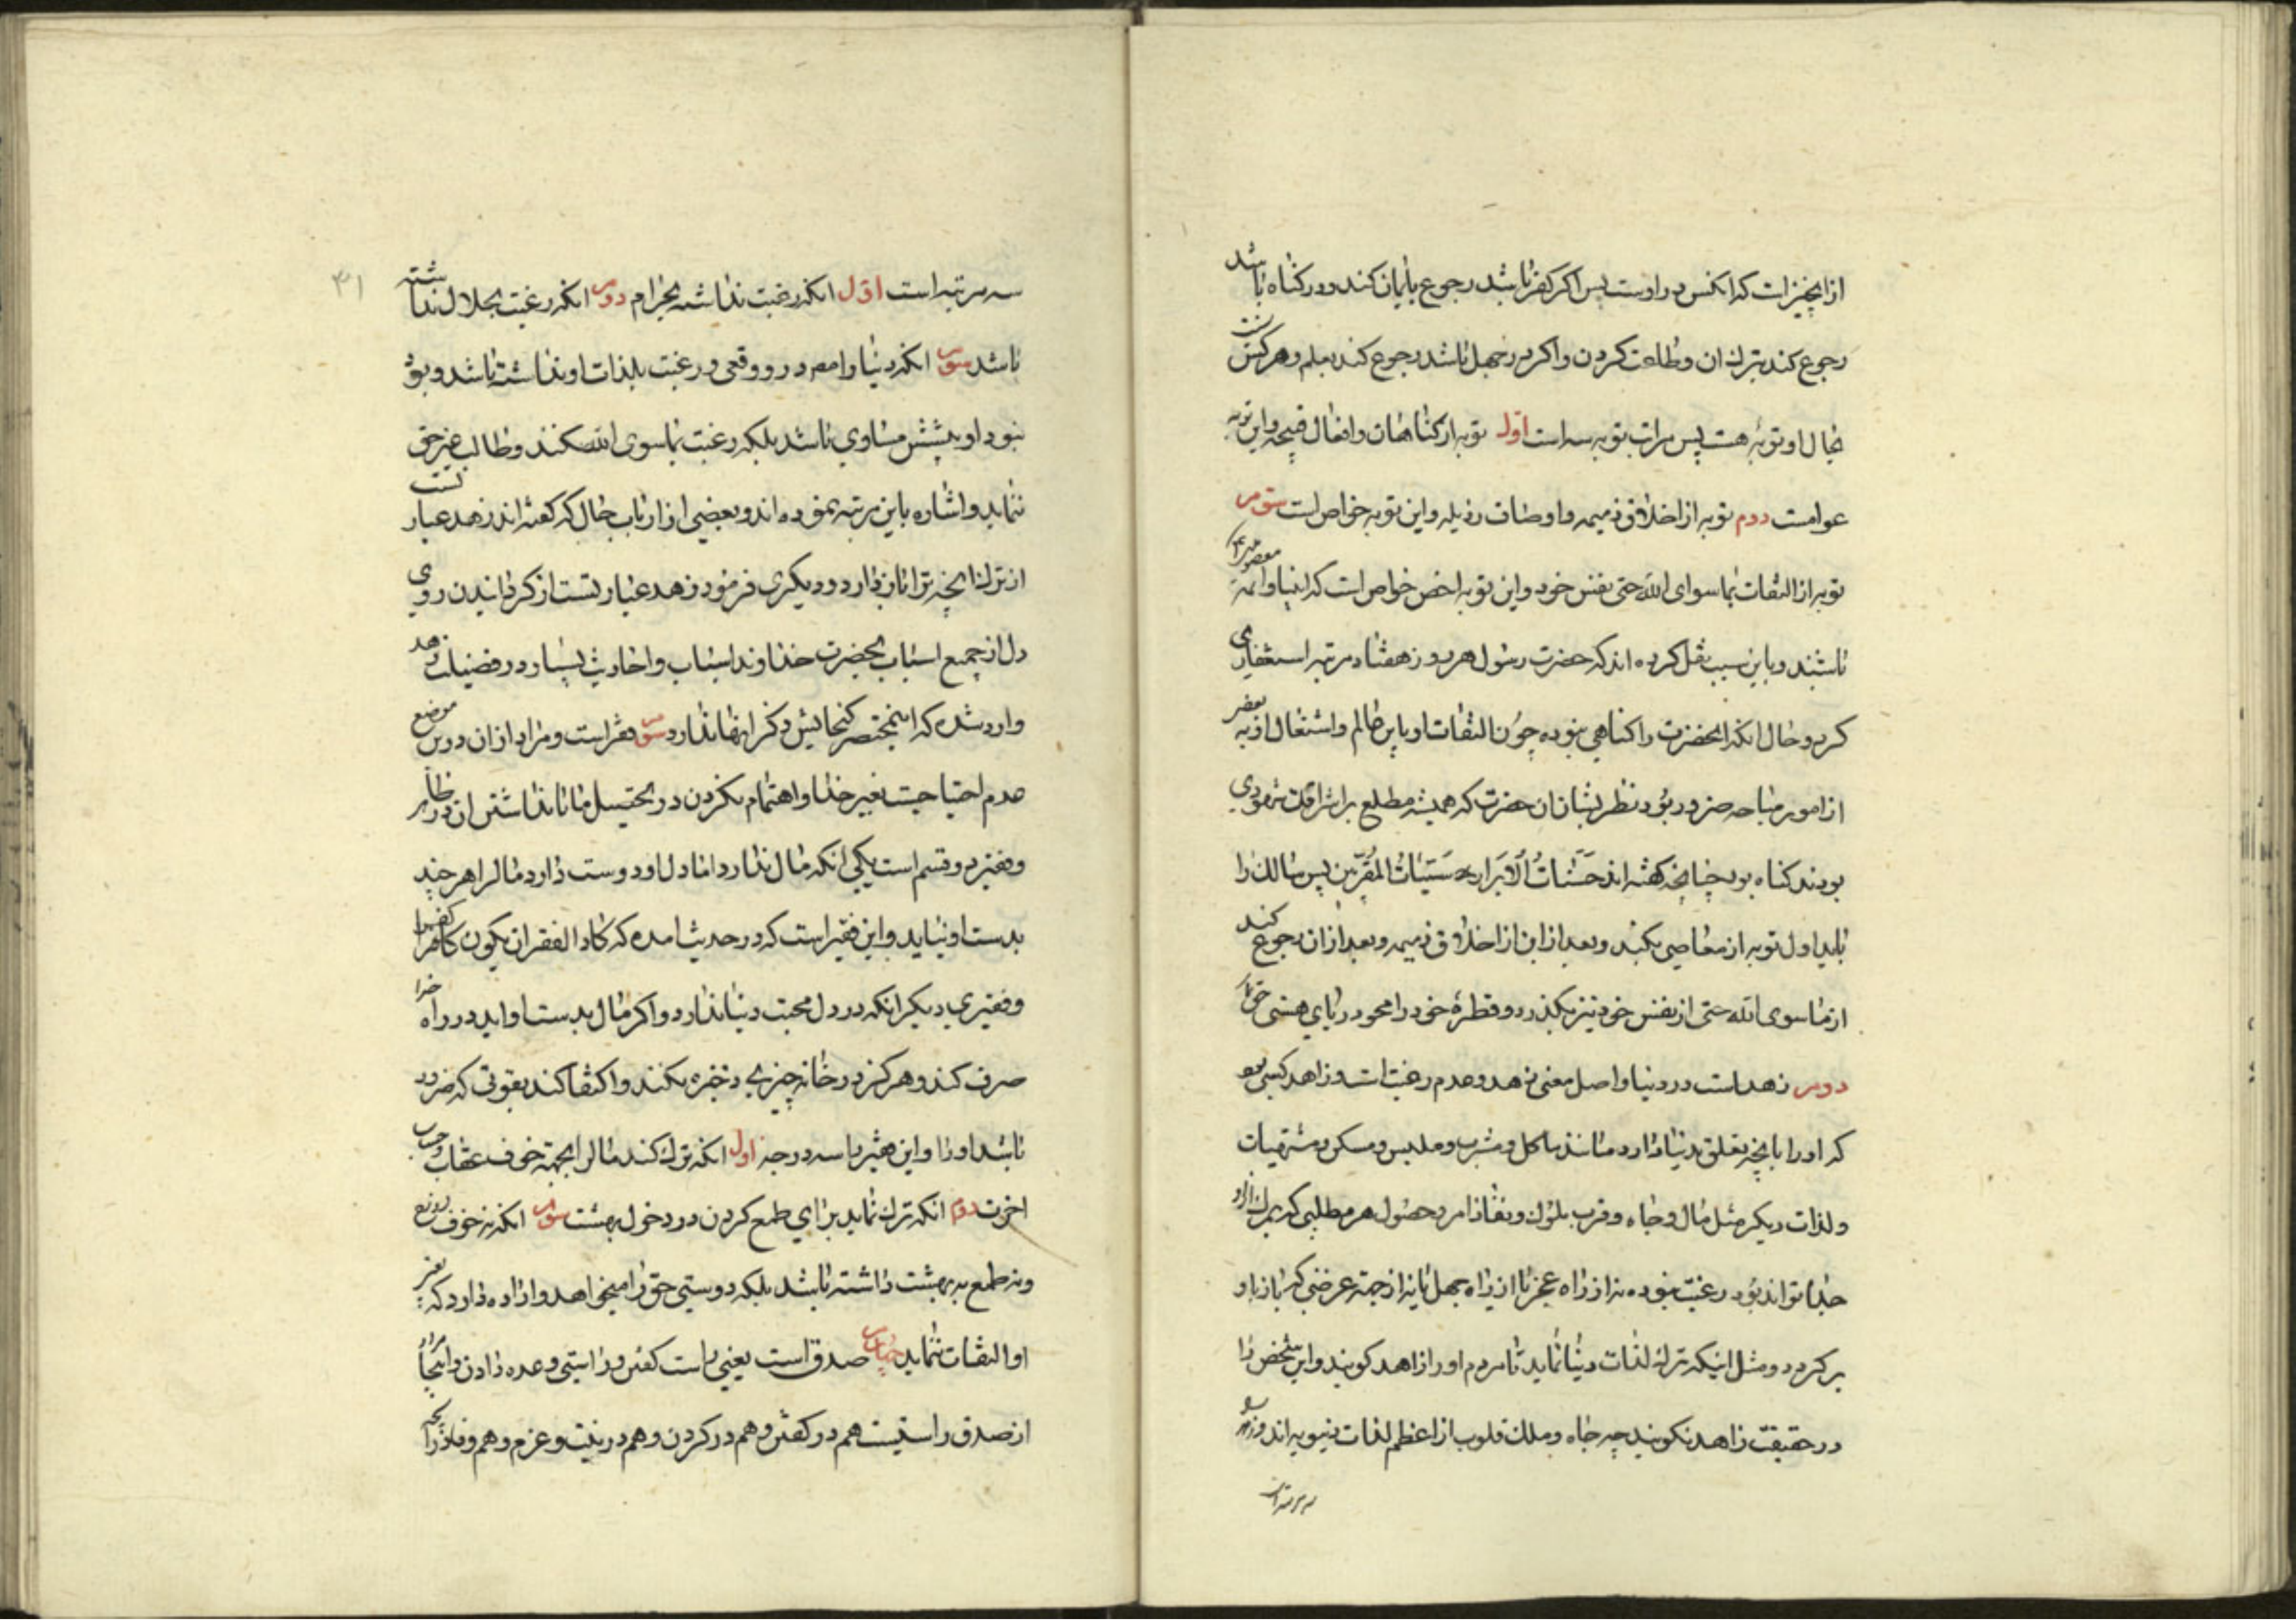 از آنچیزات که انکس در اوست پس اکر کفر باشد رجوع بایمان کند ودر کناه باشد
رجوع کند بترک ان وطاعت کردن واکر در جهل باشد رجوع کند بعلم وهر کس نسبت
بحال او توبهٔ هست پس مراتب توبه سه است اوّل توبه از کناهان وافعال قبیحه واین توبه
عوامست دوم توبه از اخلاق ذمیمه واوصاف رذیله واین توبه خواص است سوم
توبه از التفات بما سوای الله حتی نفس خود واین توبه اخص خواص است که انبیا وائمه معصومین
باشند وباین سبب نقل کرده اند که حضرت رسول هر روز هفتاد مرتبه استغفاری
کرد وحال انکه انحضرت را کناهی نبوده چون التفات او باین عالم واشتغال او به بعضی
از امور مباحه ضرور بود نظر بشان ان حضرت که همیشه مطلع بر اشراقات شهودی
بودند کناه بود چنانچه کفته اند حَسَنٰاتُ الْاَبَرار سَیّئاتُ المقرّبین پس سالک را
باید اول توبه از معاصی بکند وبعد از ان از اخلاق ذمیمه وبعد از ان رجوع کند
از ما سوی الله حتی از نفس خود نیز بکذرد وقطرهٔ خود را محو دریای هستی حق
دوم زهد است در دنیا واصل معنی زهد وعدم رغبت است وزاهد کسی بود
که او را بانچه تعلق بدنیا دارد مانند ماکل ومشرب وملبس ومسکن ومشتهیات
ولذات دیکر مثل مال وجاه وقرب ملوک ونفاذ امر وحصول هر مطلبی که بمرک از او
جدا تواند بود رغبت نبوده نه از راه عجز یا از راه جهل یا نه از جهة عرضی که باز باو
بر کردد ومثل اینکه ترک لذات دنیا نماید تا مردم او را زاهد کویند واین شخص را
در حقیقت زاهد نکویند چه جاه وملک قلوب از اعظم لذات دنیویه اند وزهد
سه مرتبه است
۳۱
سه مرتبه است اوّل انکه رغبت نداشته بحرام دوم انکه رغبت بحلال نداشته
باشد سوم انکه دنیا وامور در او وقعی ورغبت بلذات او نداشته باشد وبود
نبود او پیشش مساوی باشد بلکه رغبت بما سوی الله نکند وطالب غیر حق
ننماید واشاره باین مرتبه نموده اند وبعضی از ارباب حال که کفته اند زهد عبارتست
از ترک انچه ترا از ان باز دارد ودیکری فرمود زهد عبارتست از کردانیدن روی
دل از جمیع اسباب بحضرت خداوند اسباب واحادیث بسیار در فضیلت زهد
وارد شده که این مختصر کنجایش ذکر انها ندارد سوم فقر است ومراد از ان درین موضع
عدم احتیاجست بغیر خدا واهتمام نکردن در تحصیل مال با نداشتن ان در ظاهر
وفقیر دو قسم است یکی انکه مال ندارد اما دل او دوست دارد مال را هر چند
بدست او نیاید واین فقیر است که در حدیث امده که کاد الفقر ان یکون کفرا
وفقیری دیکر انکه در دل محبت دنیا ندارد واکر مال بدست او اید در راه خدا
صرف کند وهرکز در خانه چیزی ذخیره نکند واکتفا کند بقوتی که ضرور
باشد او را واین فقیر با سه درجه اول انکه ترک کند مال را بجهة خوف عقاب وحساب
اخرت دوم انکه ترک نماید برای طمع کردن در دخول بهشت سوم انکه نه خوف دوزخ
ونه طمع به بهشت داشته باشد بلکه دوستی حق را میخواهد واراده دارد که بغیر
او التفات ننماید چهارم صدق است یعنی راست کفتن وراستی وعده دادن واینجا مراد
از صدق راستیست هم در کفتن وهم در کردن وهم در نیت وعزم وهم وفا